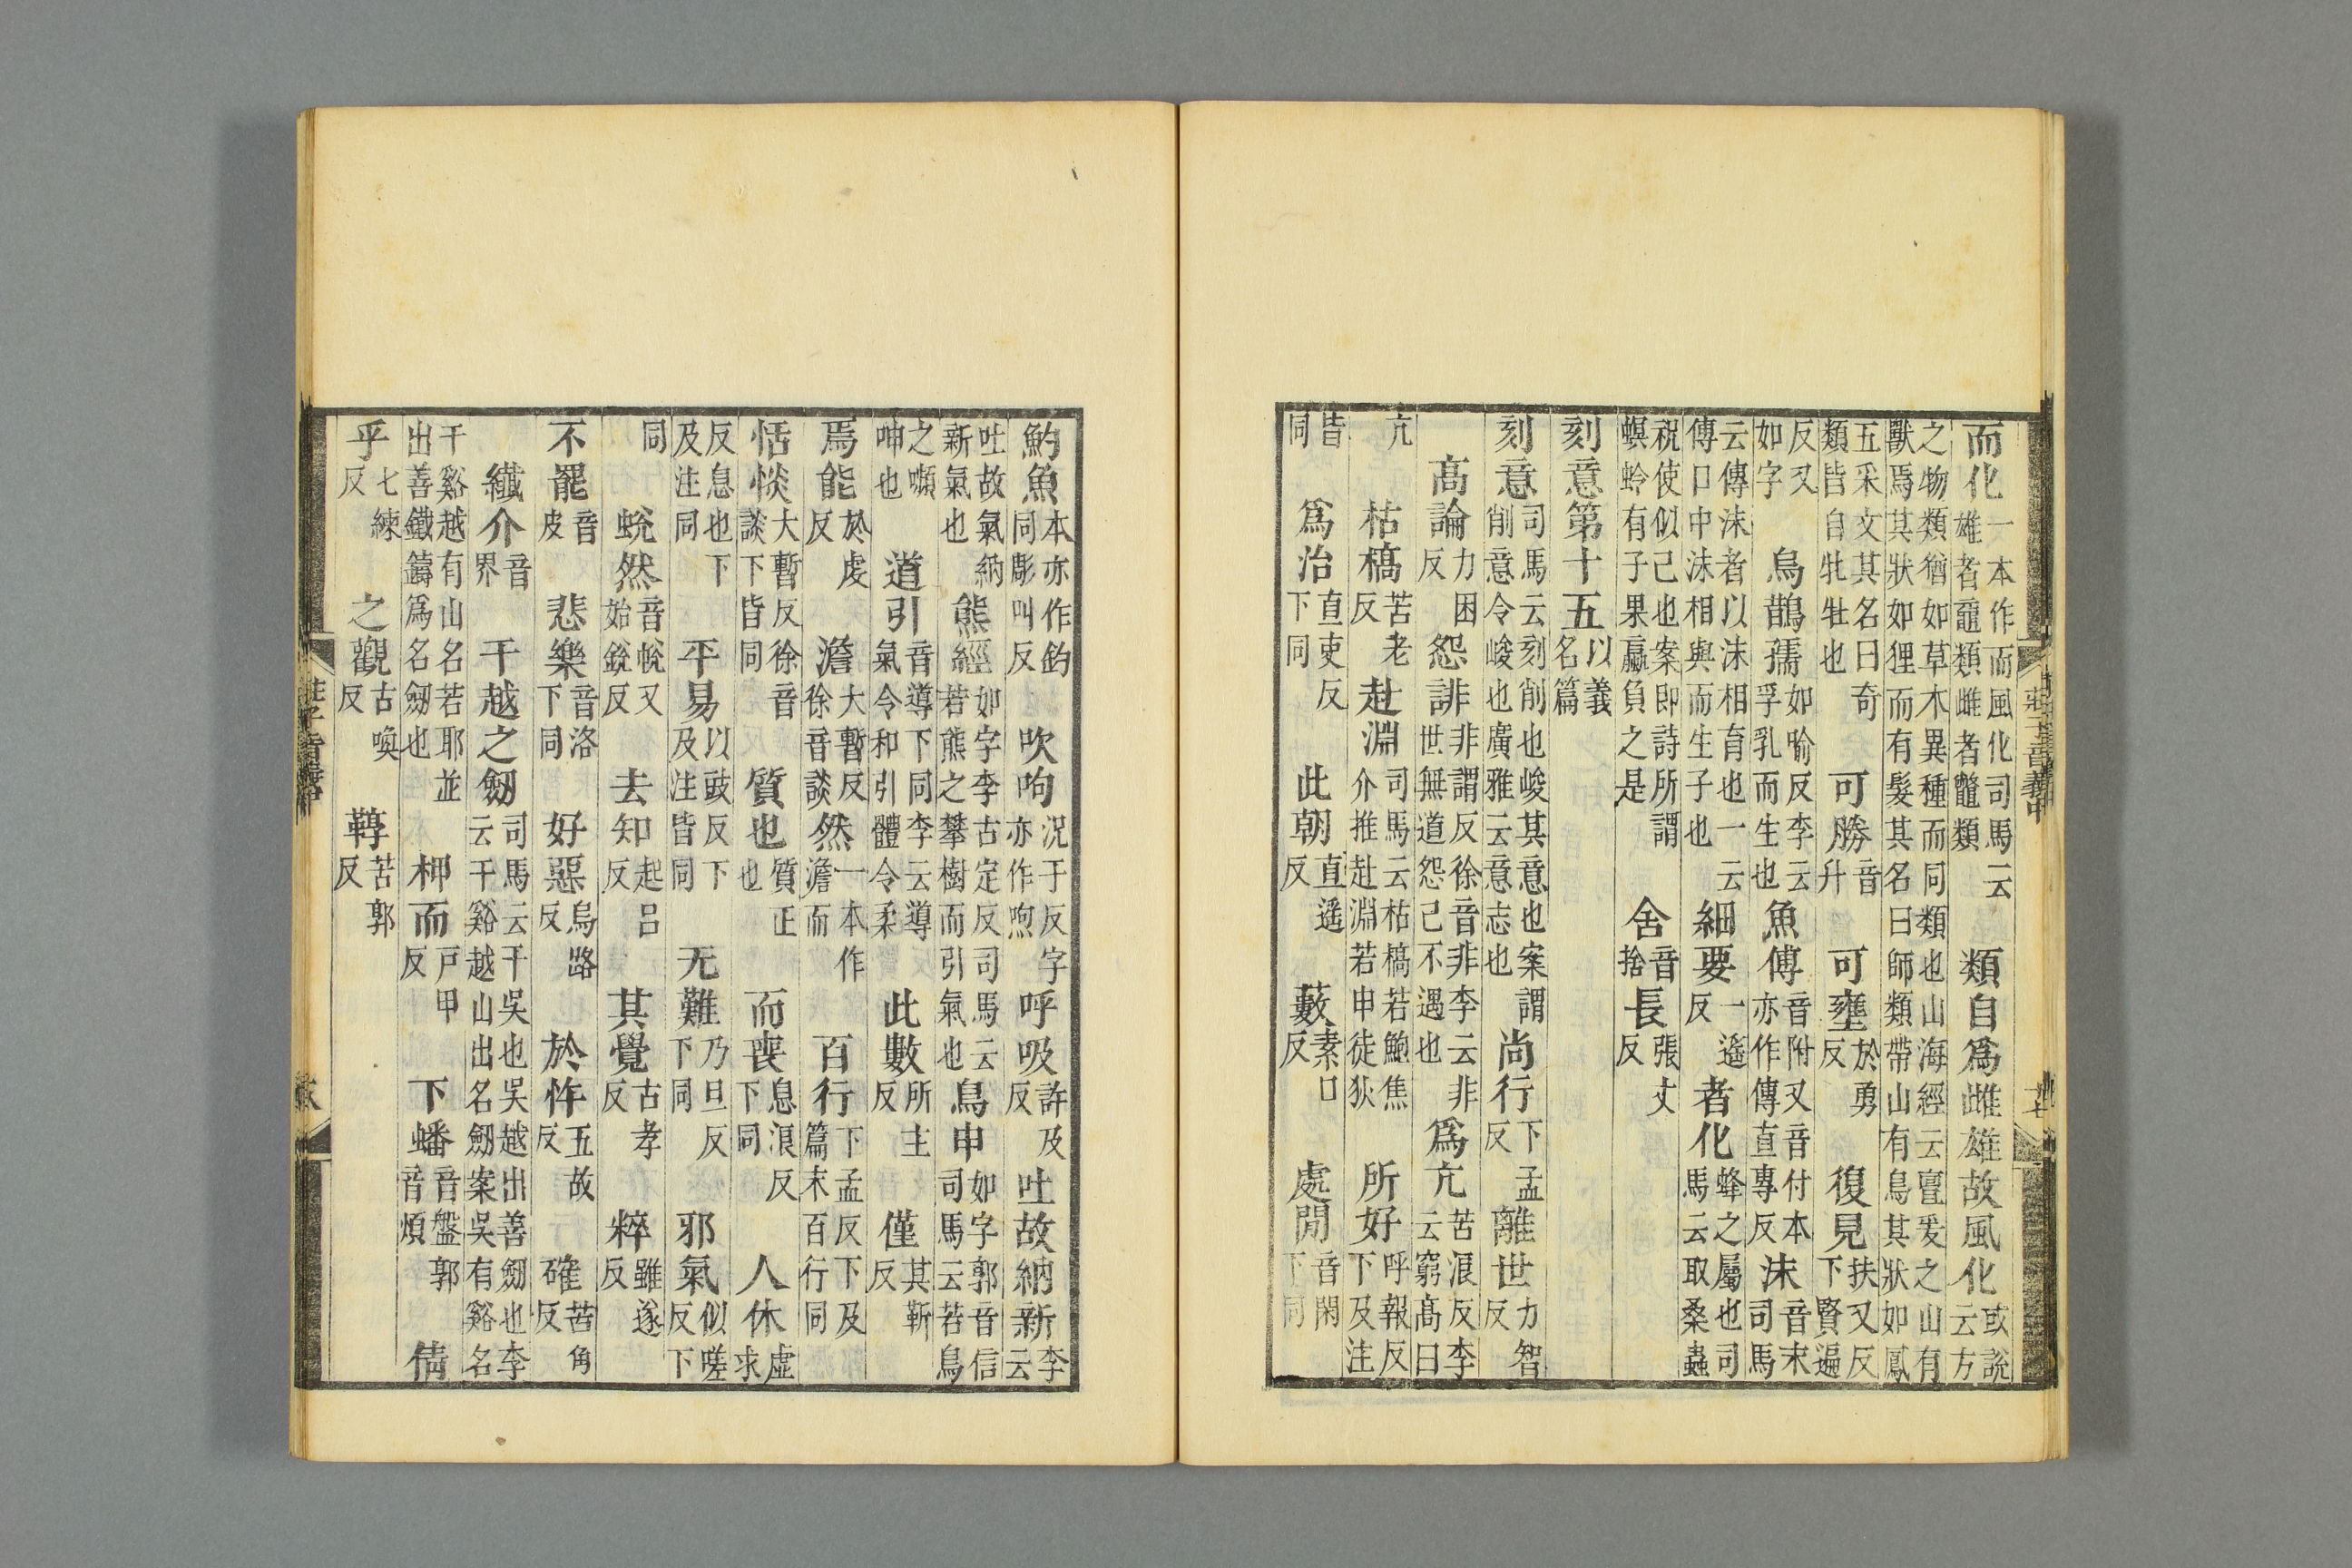 莊子音義中
而化一本作而風化司馬云雄者黿類雌者鼈類類自爲雌雄故風化或說云方
之物類猶如草木異種而同類也山海經云亶爰之山有獸焉其狀如狸而有髮其名曰師類帶山有鳥其狀如鳳
五采文其名曰奇類皆自牝牡也可勝音升可壅於勇反復見扶又反下賢遍
反又如字烏鵲孺如喻反李云孚乳而生也魚傅音附又音付本亦作傳直專反沫音末司馬
云傳沫者以沫相育也一云傳口中沫相與而生子也細要一遙反者化蜂之屬也司馬云取桑蟲
祝使似己也案即詩所謂螟蛉有子果蠃負之是舍音捨長張丈反
刻意第十五以義名篇
刻意司馬云刻削也峻其意也案謂削意令峻也廣雅云意志也尚行下孟反離世力智反
高論力困反怨誹非謂反徐音非李云非世無道怨己不遇也爲亢苦浪反李云窮高曰
亢枯槁苦老反赴淵司馬云枯槁若鮑焦介推赴淵若申徒狄所好呼報反下及注
皆同爲治直吏反下同此朝直遙反藪素口反處閒音閑下同
魡魚本亦作釣同彫叫反吹呴況于反字亦作煦呼吸許及反吐故納新李云
吐故氣納新氣也熊經如字李古定反司馬云若熊之攀樹而引氣也鳥申如字郭音信司馬云若鳥
之嚬呻也道引音導下同李云導氣令和引體令柔此數所主反僅其靳反
焉能於虔反澹大暫反徐音談然一本作澹而百行下孟反下及篇末百行同
恬惔大暫反徐音談下皆同質也質正也而喪息浪反下同人休虛求
反息也下及注同平易以豉反下及注皆同无難乃旦反下同邪氣似嗟反下
同蛻然音帨又始銳反去知起呂反其覺古孝反粹雖遂反
不罷音皮悲樂音洛下同好惡烏路反於忤五故反確苦角反
纖介音界干越之劒司馬云干吳也吳越出善劒也李云干谿越山出名劒案吳有谿名
干谿越有山名若耶並出善鐵鑄爲名劒也柙而戶甲反下蟠音盤郭音煩倩
乎七練反之觀古喚反鞹苦郭反